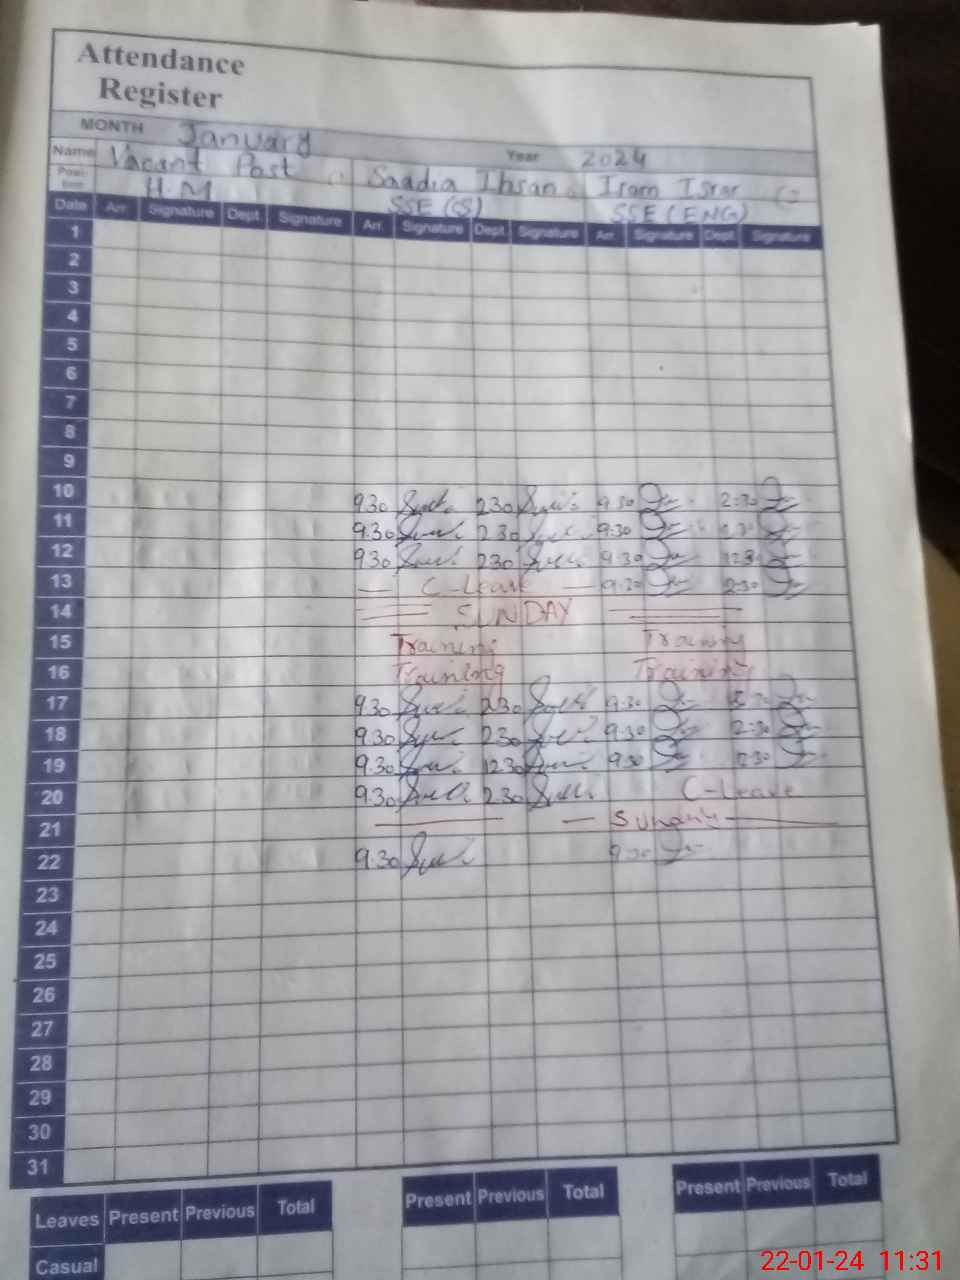 Attendance
Register
MONTH January Year 2024
Name Vacant Post Saadia Ihsan Iram Israr
H.M SSE (CS) SSE (ENG)
Date Arr. Signature Dept. Signature Arr. Signature Dept. Signature Arr. Signature Dept. Signature
1
2
3
4
5
6
7
8
9
10 9.30 230 9:30 2:30
11 9.30 230 9:30
12 9.30 230 9:30
13 C-Leave 9:30 2:30
14 SUNDAY
15 Training Training
16 Training Training
17 9.30 230 9:30
18 9.30 230 9:30 2:30
19 9.30 1230 930
20 9.30 230 C-Leave
21 Sunday
22 9.30 9:30
23
24
25
26
27
28
29
30
31
Leaves Present Previous Total Present Previous Total Present Previous Total
Casual
22-01-24 11:31